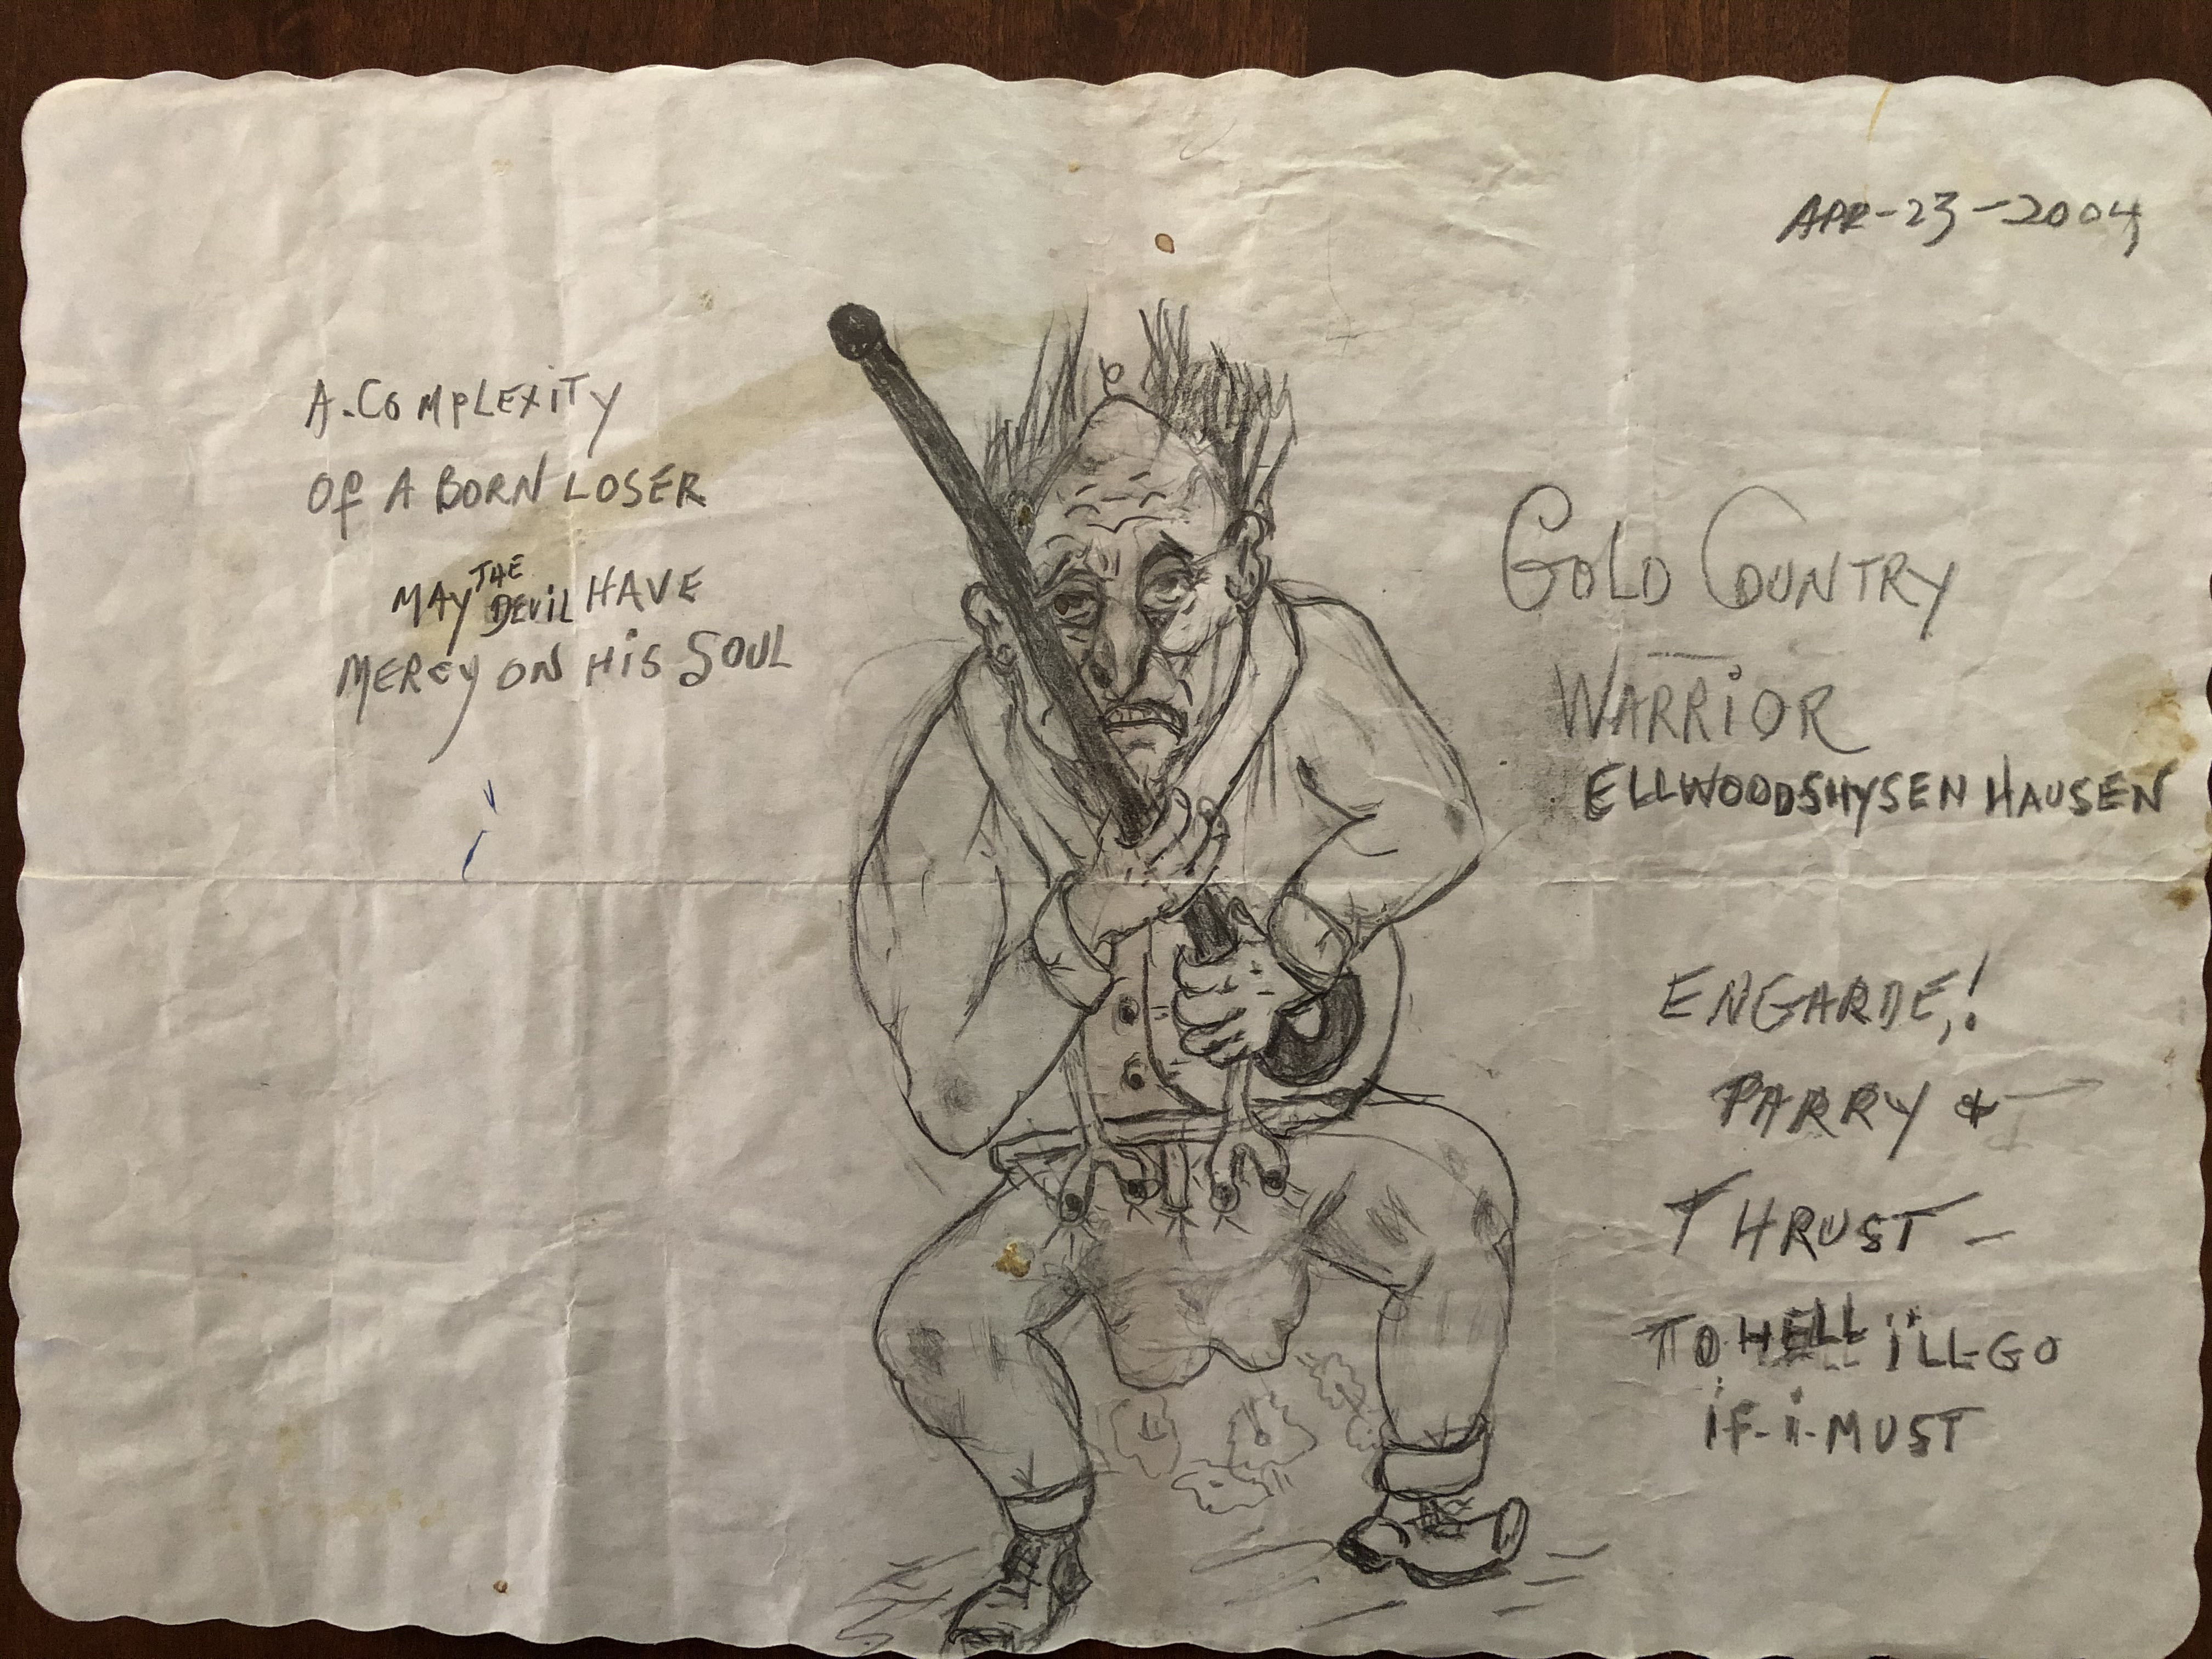 APR-23-2004
A-COMPLEXITY
Of A BORN LOSER
MAY THE DEViL HAVE
MERCY ON HiS SOUL
GOLD COUNTRY
WARRiOR
ELLWOODSHYSEN HAUSEN
ENGARDE,!
PARRY &
THRUST -
TO HELL i'LL-GO
iF-i-MUST